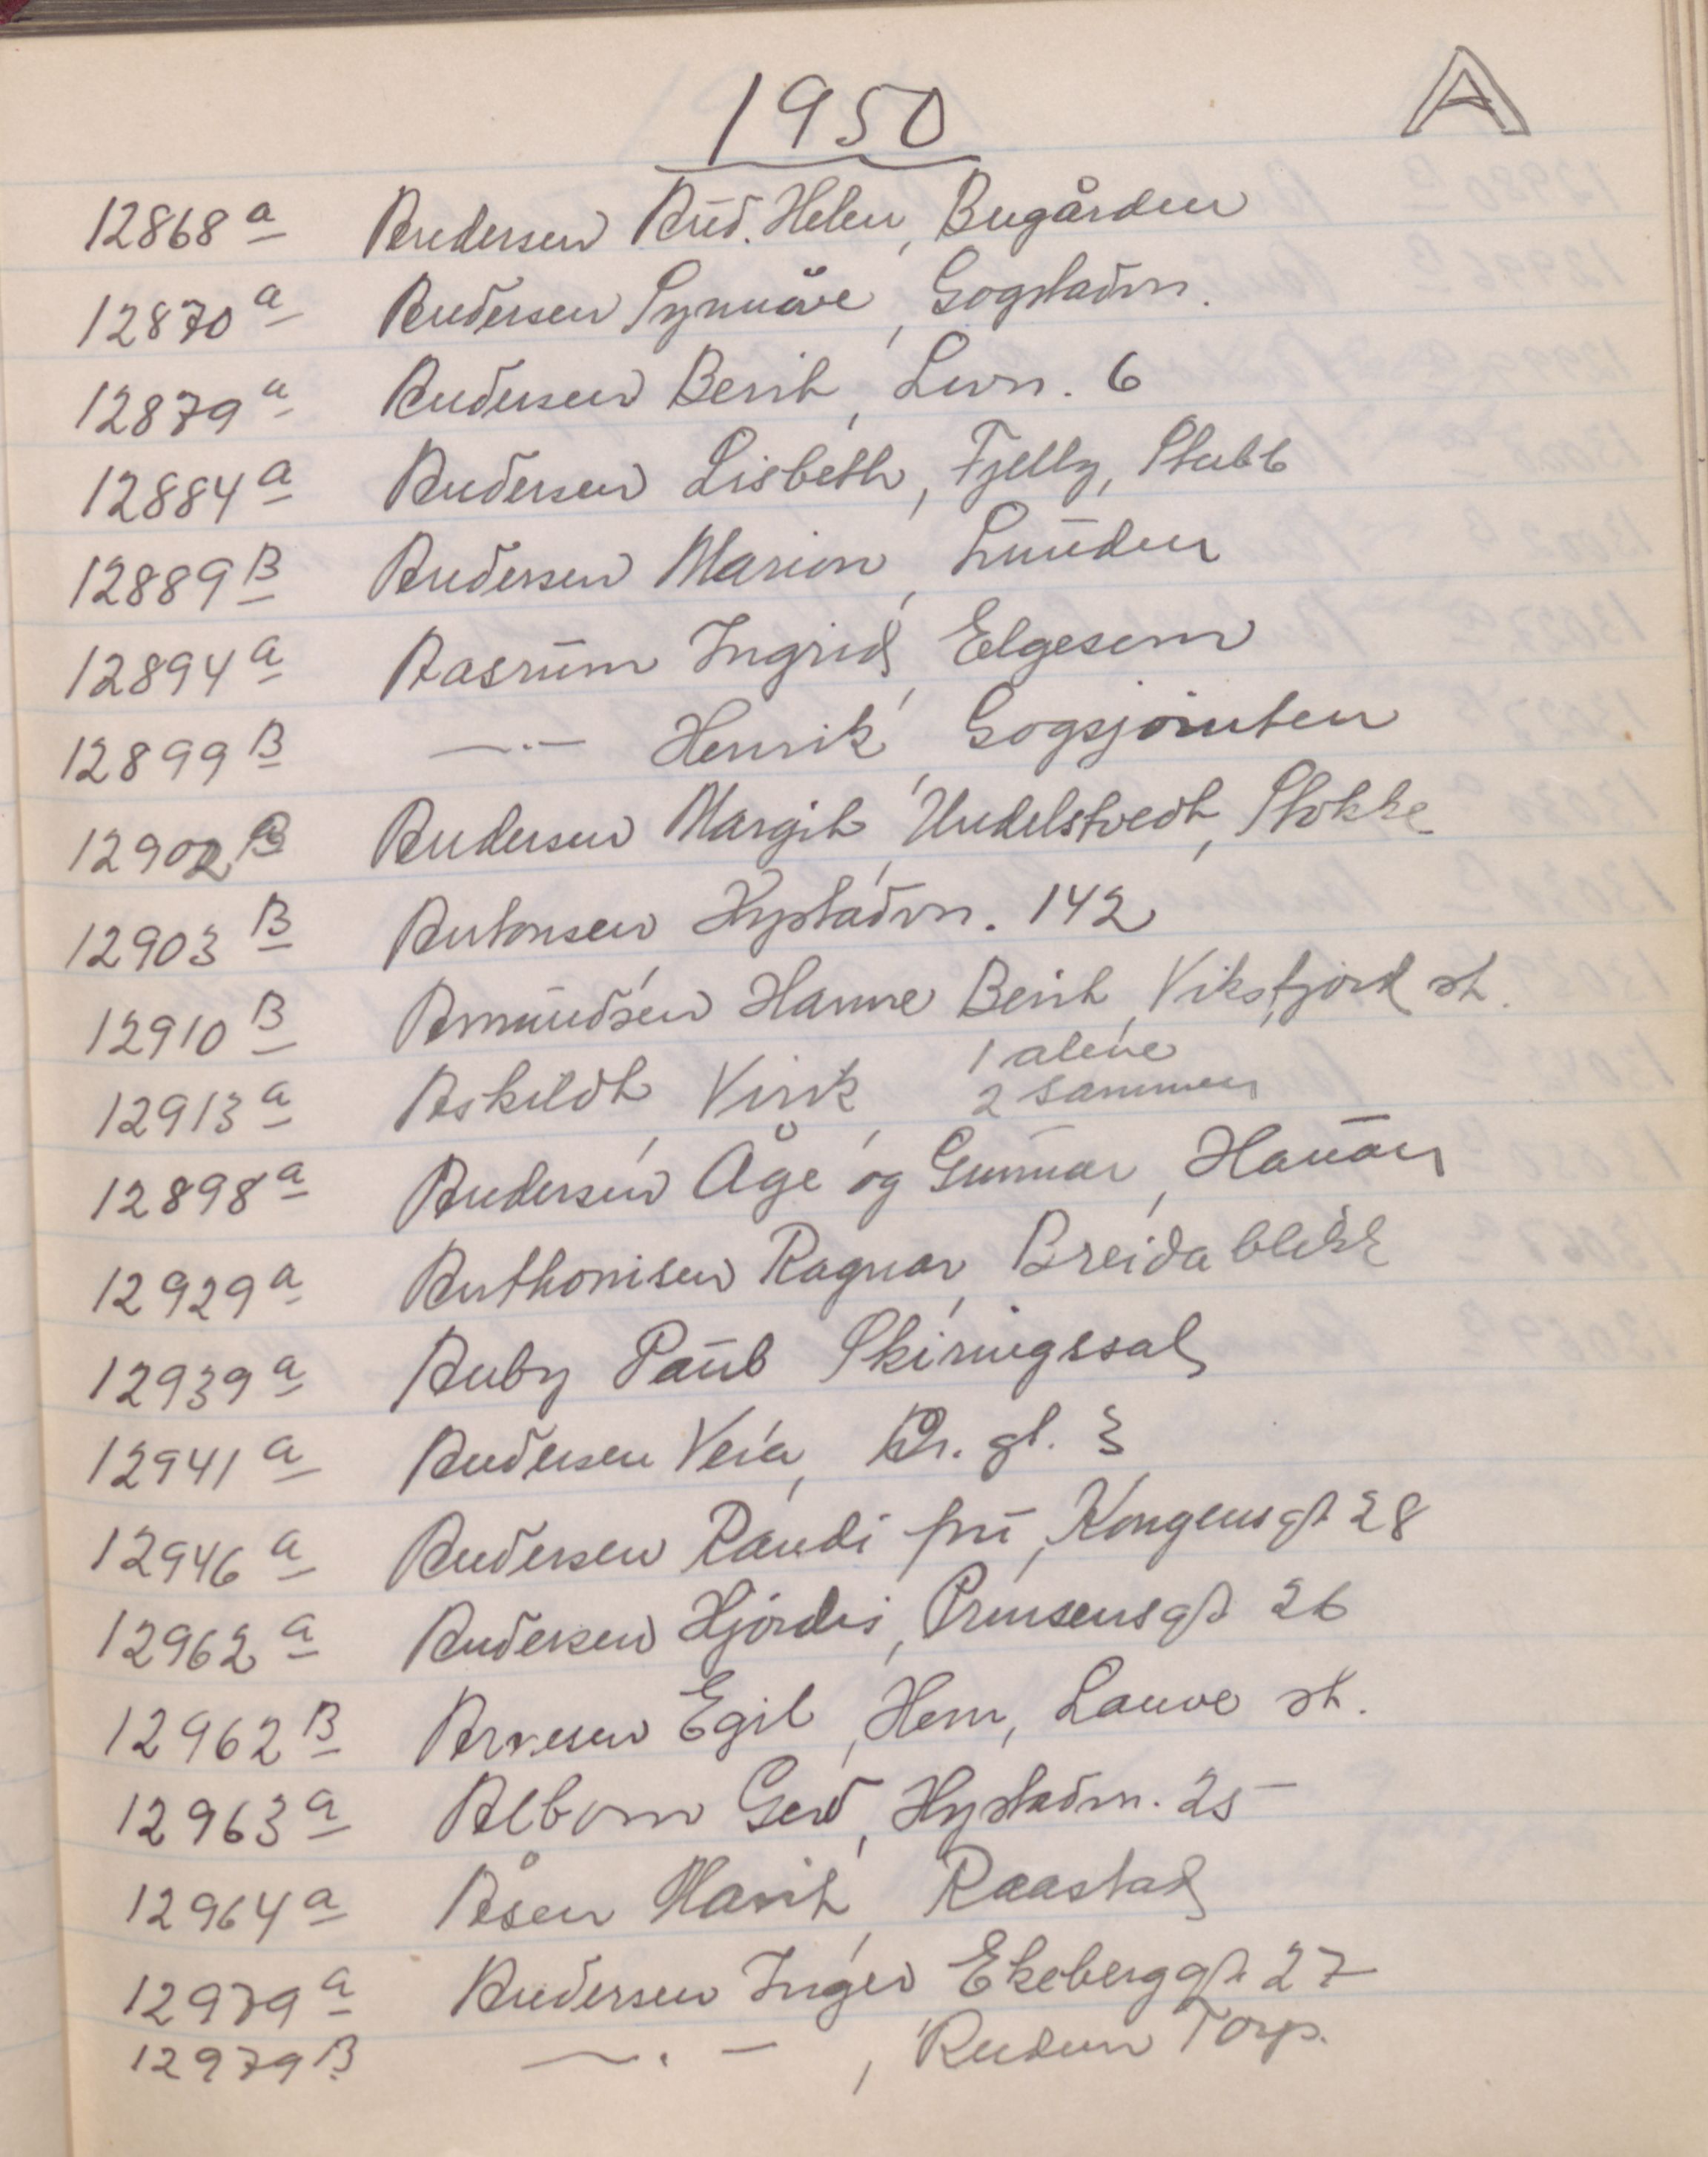 1950 A
12868 a Andersen Aud. Helen, Bugården
12870 a Andersen Synnøve, Gogstadvn.
12879 a Andersen Berit, Lvvn. 6
12884 a Andersen Lisbeth, Fjelly, Stubb
12889 B Andersen Marion, Lunden
12894 a Aasrum Ingrid, Elgesem
12899 B —.— Henrik, Gogsjøruten
12902 B Andersen Margit, Undelstvedt, Stokke
12903 B Antonsen, Nystadvn. 142
12910 B Amundsen Hanne Berit, Viksfjord st.
1 alene
12913 a Askildt, Virik, 2 sammen
12898 a Andersen Åge og Gunnar, Hauan
12929 a Anthonisen Ragnar, Breidablikk
12939 a Auby Paul Skiringssal
12941 a Andersen Vera, Br. gt. 3
12946 a Andersen Randi fru, Kongensgt 28
12962 a Andersen Hjørdis, Prinsensgt 26
12962 B Arvesen Egil, Hem, Lauve st.
12963 a Albom Gerd, Nystadvn. 25
12964 a Åsen Marit, Raastad
12979 a Andersen Inger Ekeberggt. 27
12979 B —.—, Reidun Torp.